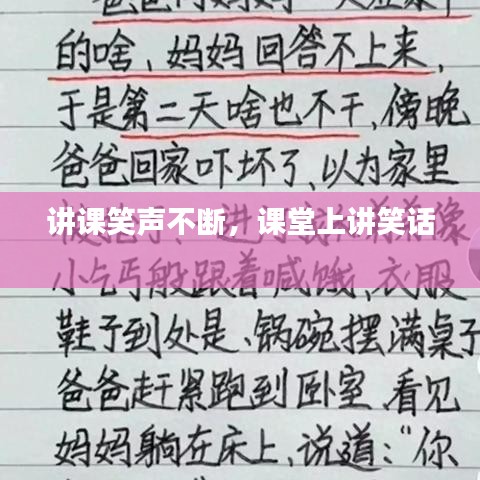 爸爸问妈妈一天在家干
的啥、妈妈回答不上来,
于是第二天啥也不干,傍晚
爸爸回家吓坏了,以为家里
讲课笑声不断，课堂上讲笑话
小乞丐般跟着喊饿、衣服
鞋子到处是、锅碗摆满桌子
爸爸赶紧跑到卧室,看见
妈妈躺在床上,说道:“你